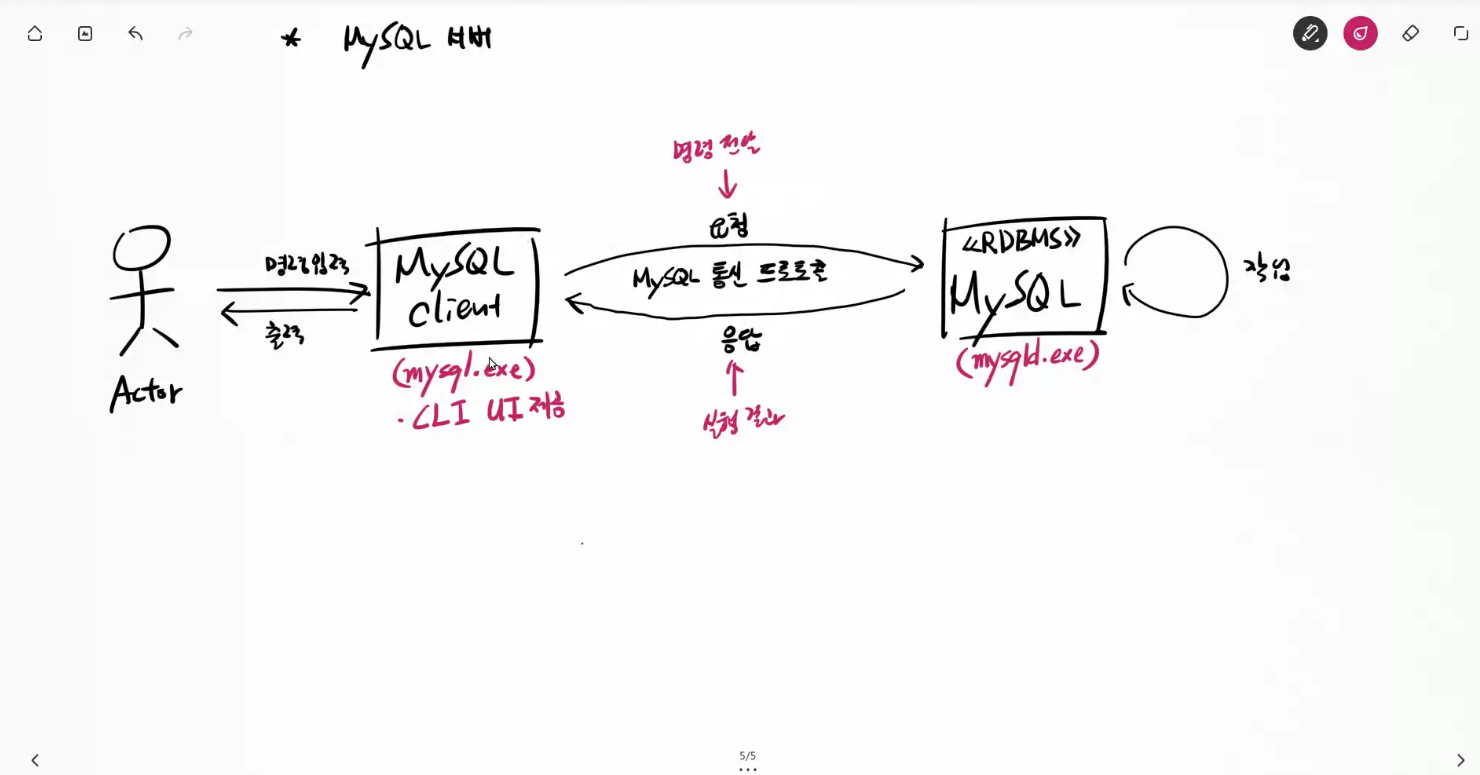 * MySQL 서버
명령 전달
요청
명령입력
MySQL
client
MySQL 통신 프로토콜
《RDBMS》
MySQL
작업
출력
응답
(mysql.exe)
(mysqld.exe)
Actor
· CLI UI 제공
실행 결과
5/5